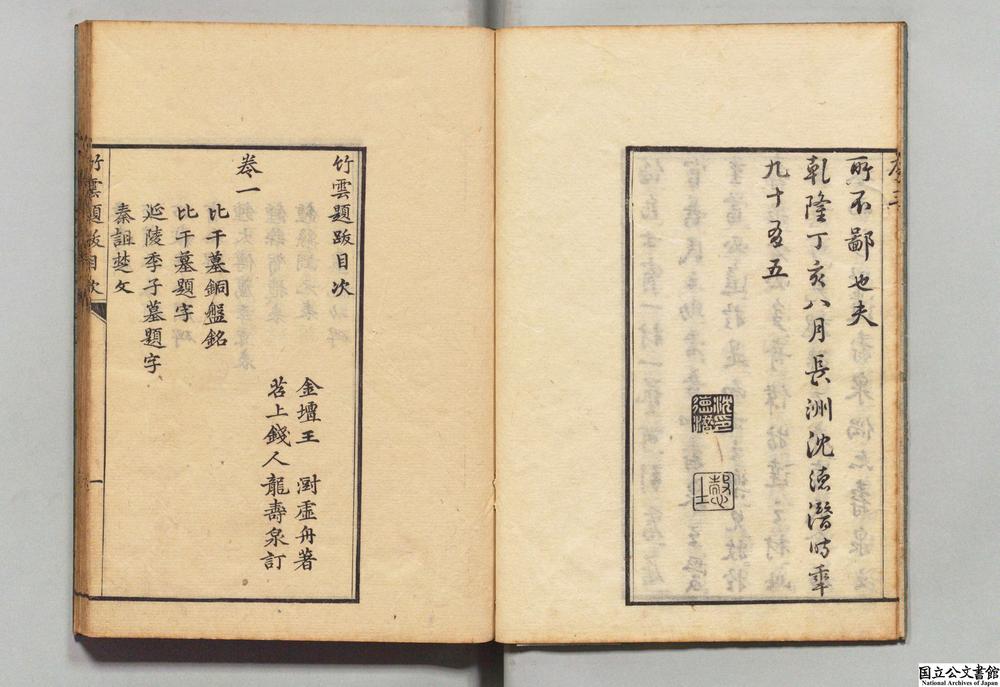 所不鄙也夫
乾隆丁亥八月長洲沈德潛時年
九十五
沈德潛印
竹雲題跋目次
金壇王 澍虛舟著
苕上錢人龍壽泉訂
卷一
比干墓銅盤銘
比干墓題字
延陵季子墓題字
秦詛楚文
竹雲題跋目次
一
国立公文書館
National Archives of Japan